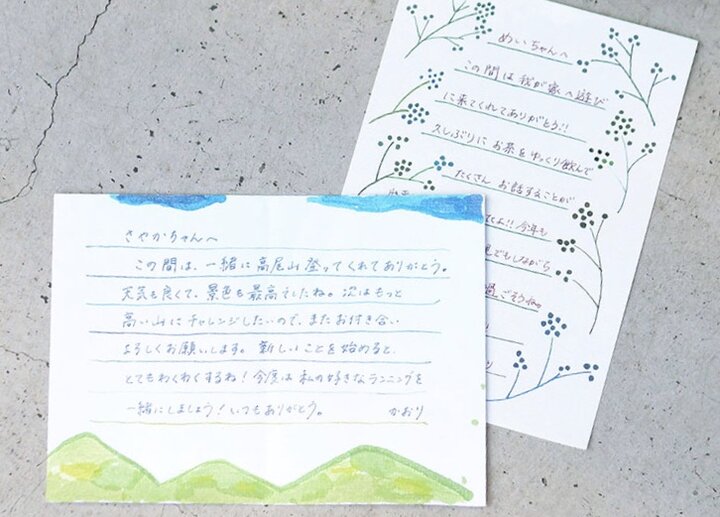 さやかちゃんへ
この間は、一緒に高尾山登ってくれてありがとう。
天気も良くて、景色も最高でしたね。次はもっと
高い山にチャレンジしたいので、またお付き合い
よろしくお願いします。新しいことを始めると、
とてもわくわくするね!今度は私の好きなランニングを
一緒にしましょう!いつもありがとう。 かおり
めいちゃんへ
この間は我が家へ遊び
に来てくれてありがとう!!
久しぶりにお茶をゆっくり飲んで
たくさんお話することが
てよ!!今年も
でもしながら
過ごそうね。